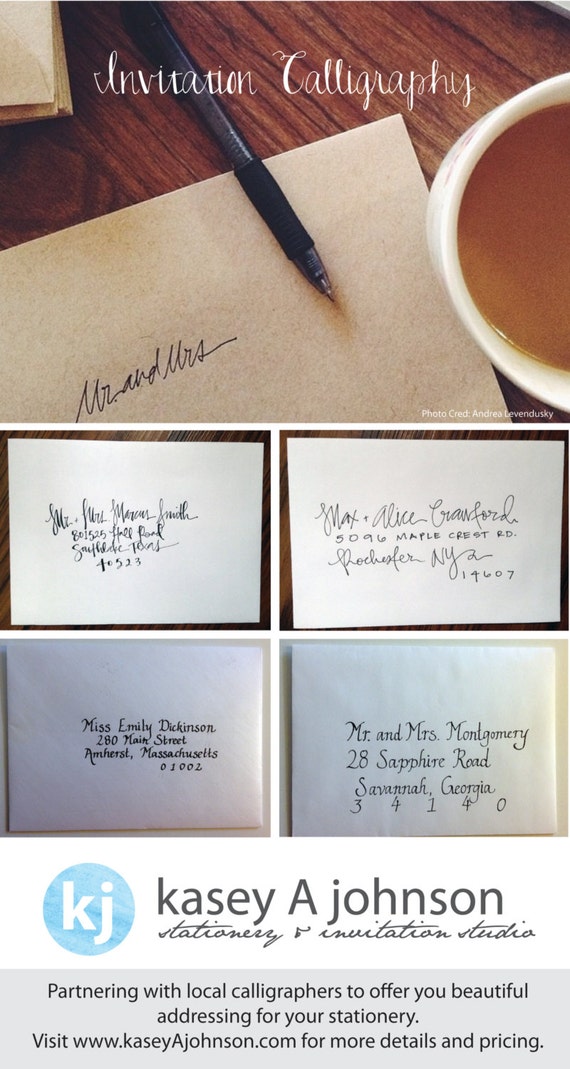 Invitation Calligraphy
Mr. and Mrs
Photo Cred: Andrea Levendusky
Mr. + Mrs. Marcus Smith
801525 Hall Road
Texas
40523
Max + Alice Crawford
5096 MAPLE CREST RD.
Rochester NY
14607
Miss Emily Dickinson
280 Main Street
Amherst, Massachusetts
01002
Mr. and Mrs. Montgomery
28 Sapphire Road
Savannah, Georgia
3 4 1 4 0
kj
kasey A johnson
stationery & invitation studio
Partnering with local calligraphers to offer you beautiful
addressing for your stationery.
Visit www.kaseyAjohnson.com for more details and pricing.